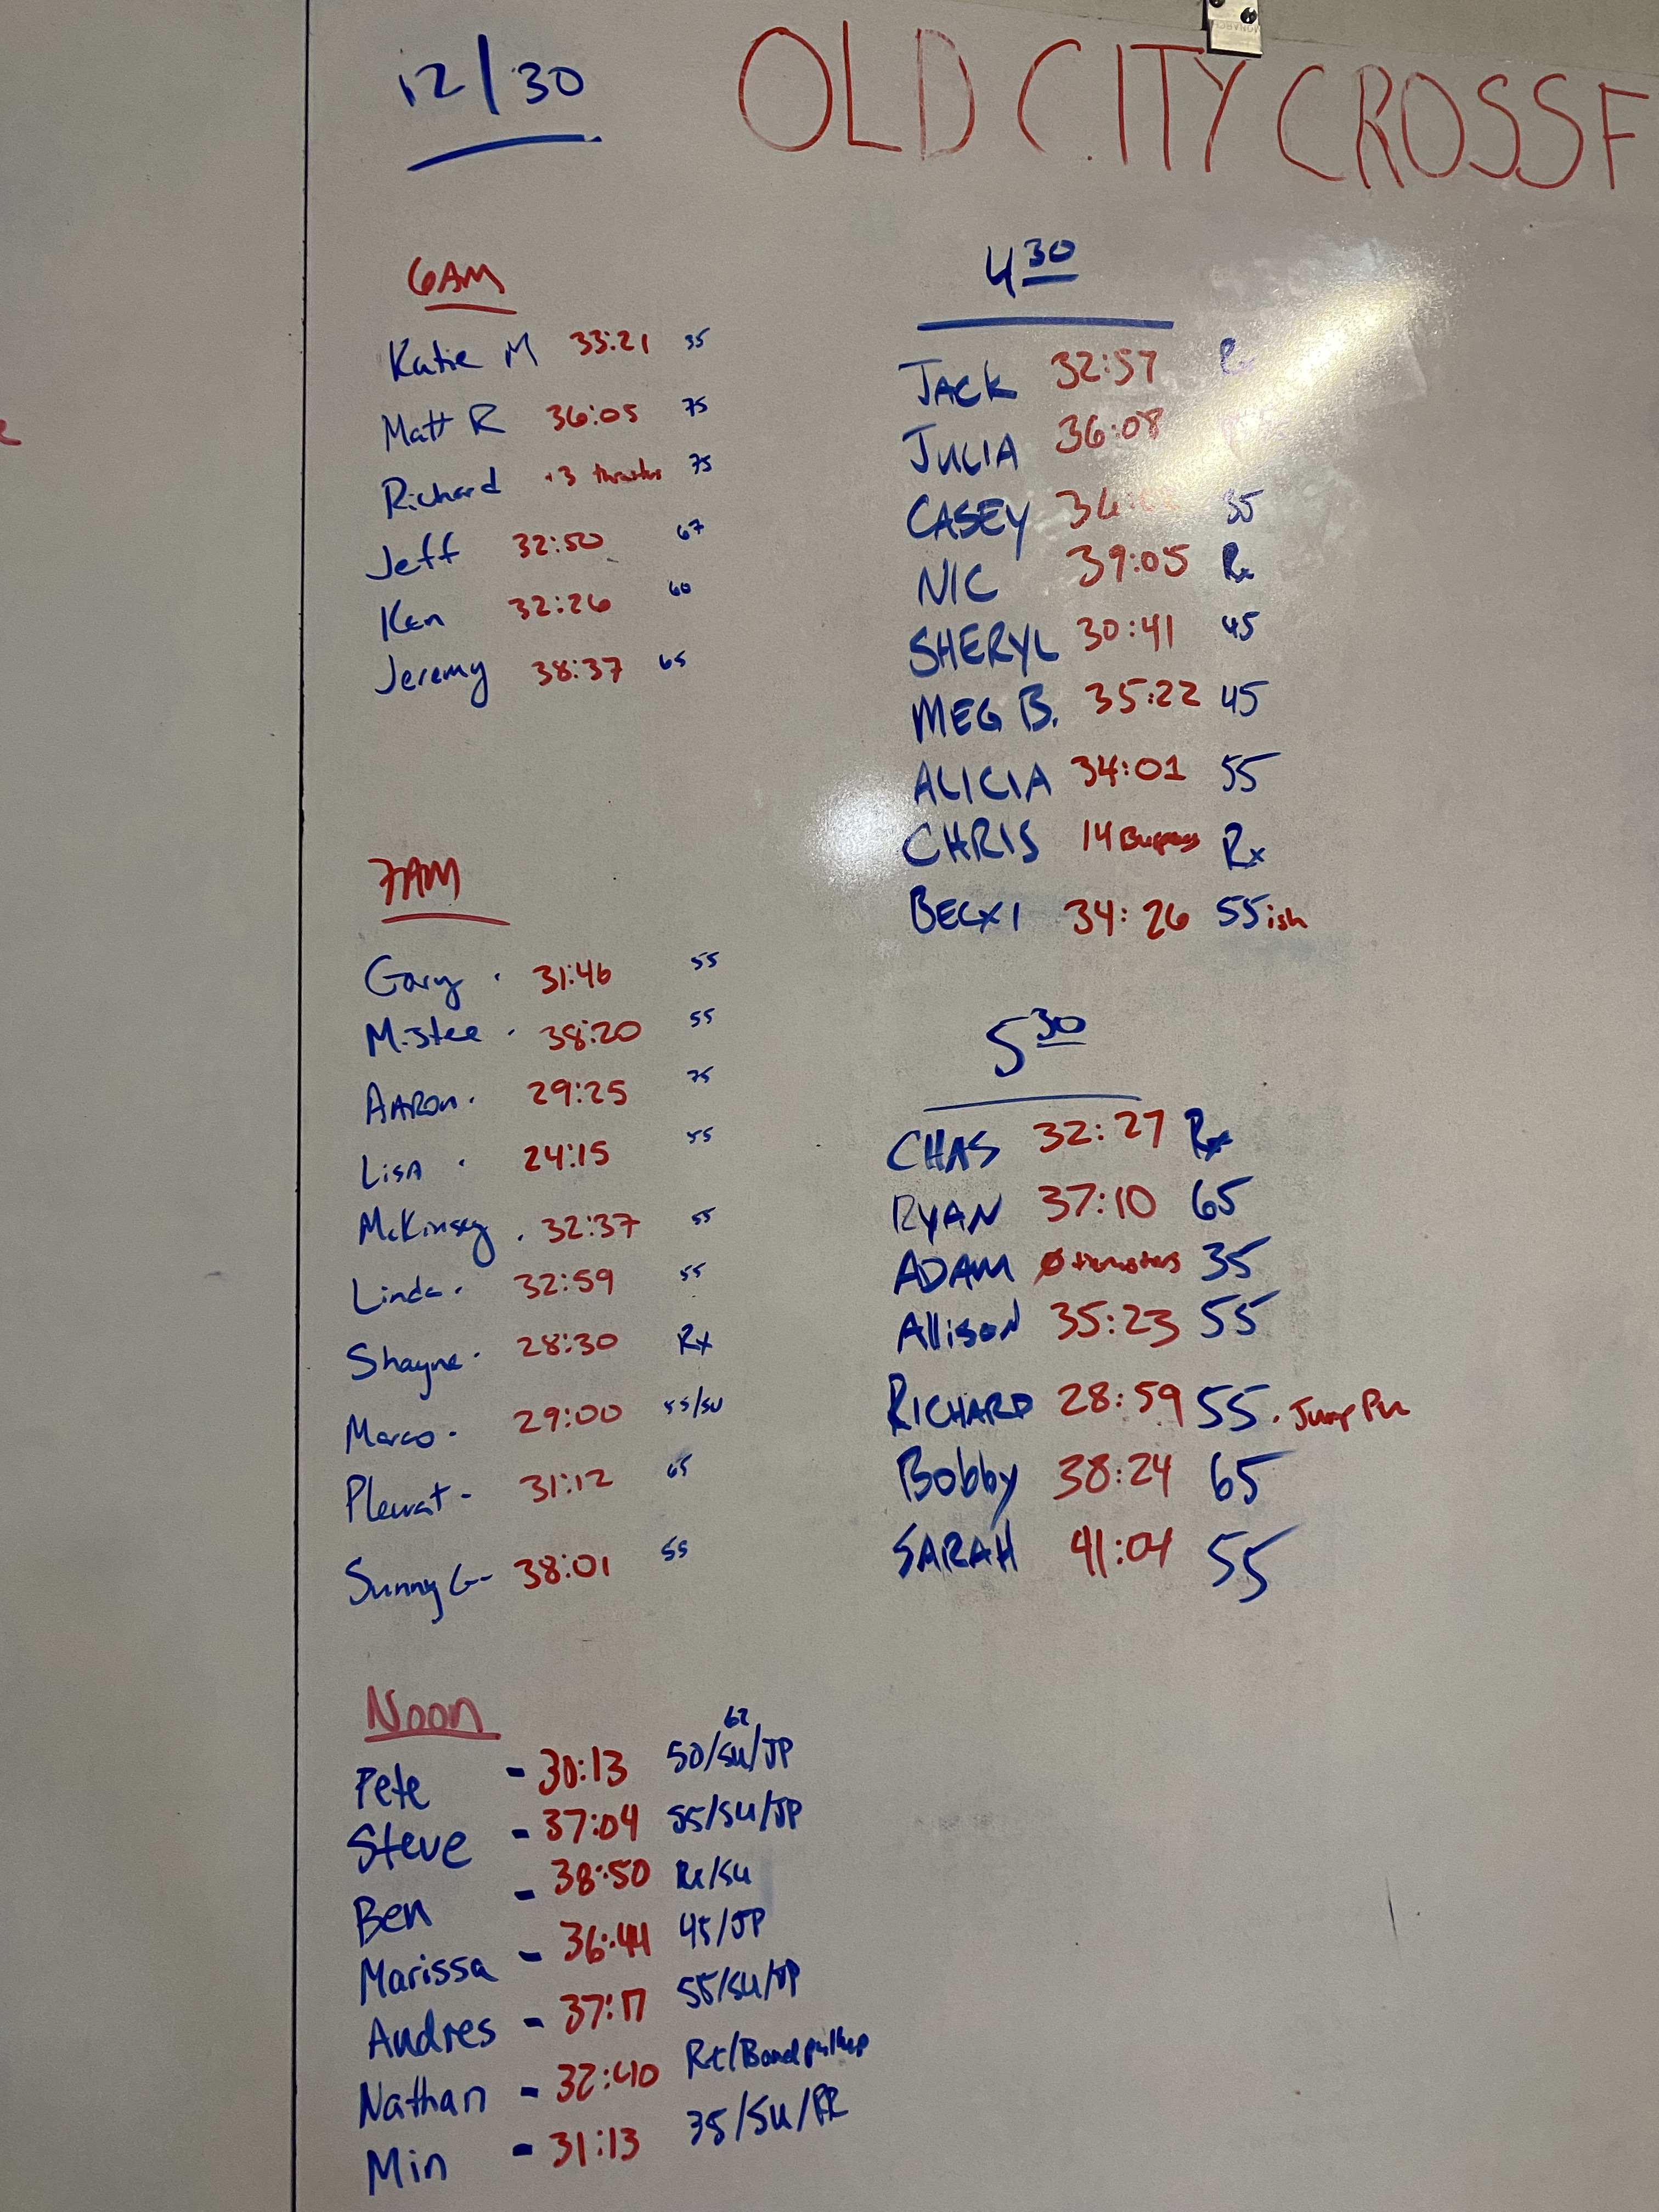 12/30
OLD CITY CROSSF
6AM
Katie M 33:21 35
Matt R 36:05 75
Richard +3 thrusters 75
Jeff 32:50 67
Ken 32:26 60
Jeremy 38:37 65
7AM
Gary . 31:46 55
Mistee . 38:20 55
AARON. 29:25 75
LISA . 24:15 55
McKinsey . 32:37 55
Linda. 32:59 55
Shayne. 28:30 Rx
Marco. 29:00 55/SU
Plewat - 31:12 65
Sunny G- 38:01 55
Noon
62
Pete - 30:13 50/SU/JP
Steve - 37:04 55/SU/JP
Ben - 38:50 Rx/SU
Marissa - 36:44 45/JP
Andres - 37:17 55/SU/JP
Nathan - 32:40 Rx/Band pullup
Min - 31:13 35/SU/RR
4 30
JACK 32:57 Rx
JULIA 36:08
CASEY 35
NIC 39:05 Rx
SHERYL 30:41 45
MEG B. 35:22 45
ALICIA 34:01 55
CHRIS 14 Burpees Rx
BECKI 34:26 55ish
5 30
CHAS 32:27 Rx
RYAN 37:10 65
ADAM Ø thrusters 35
Allison 35:23 55
RICHARD 28:59 55 . Jump Pu
Bobby 38:24 65
SARAH 41:04 55